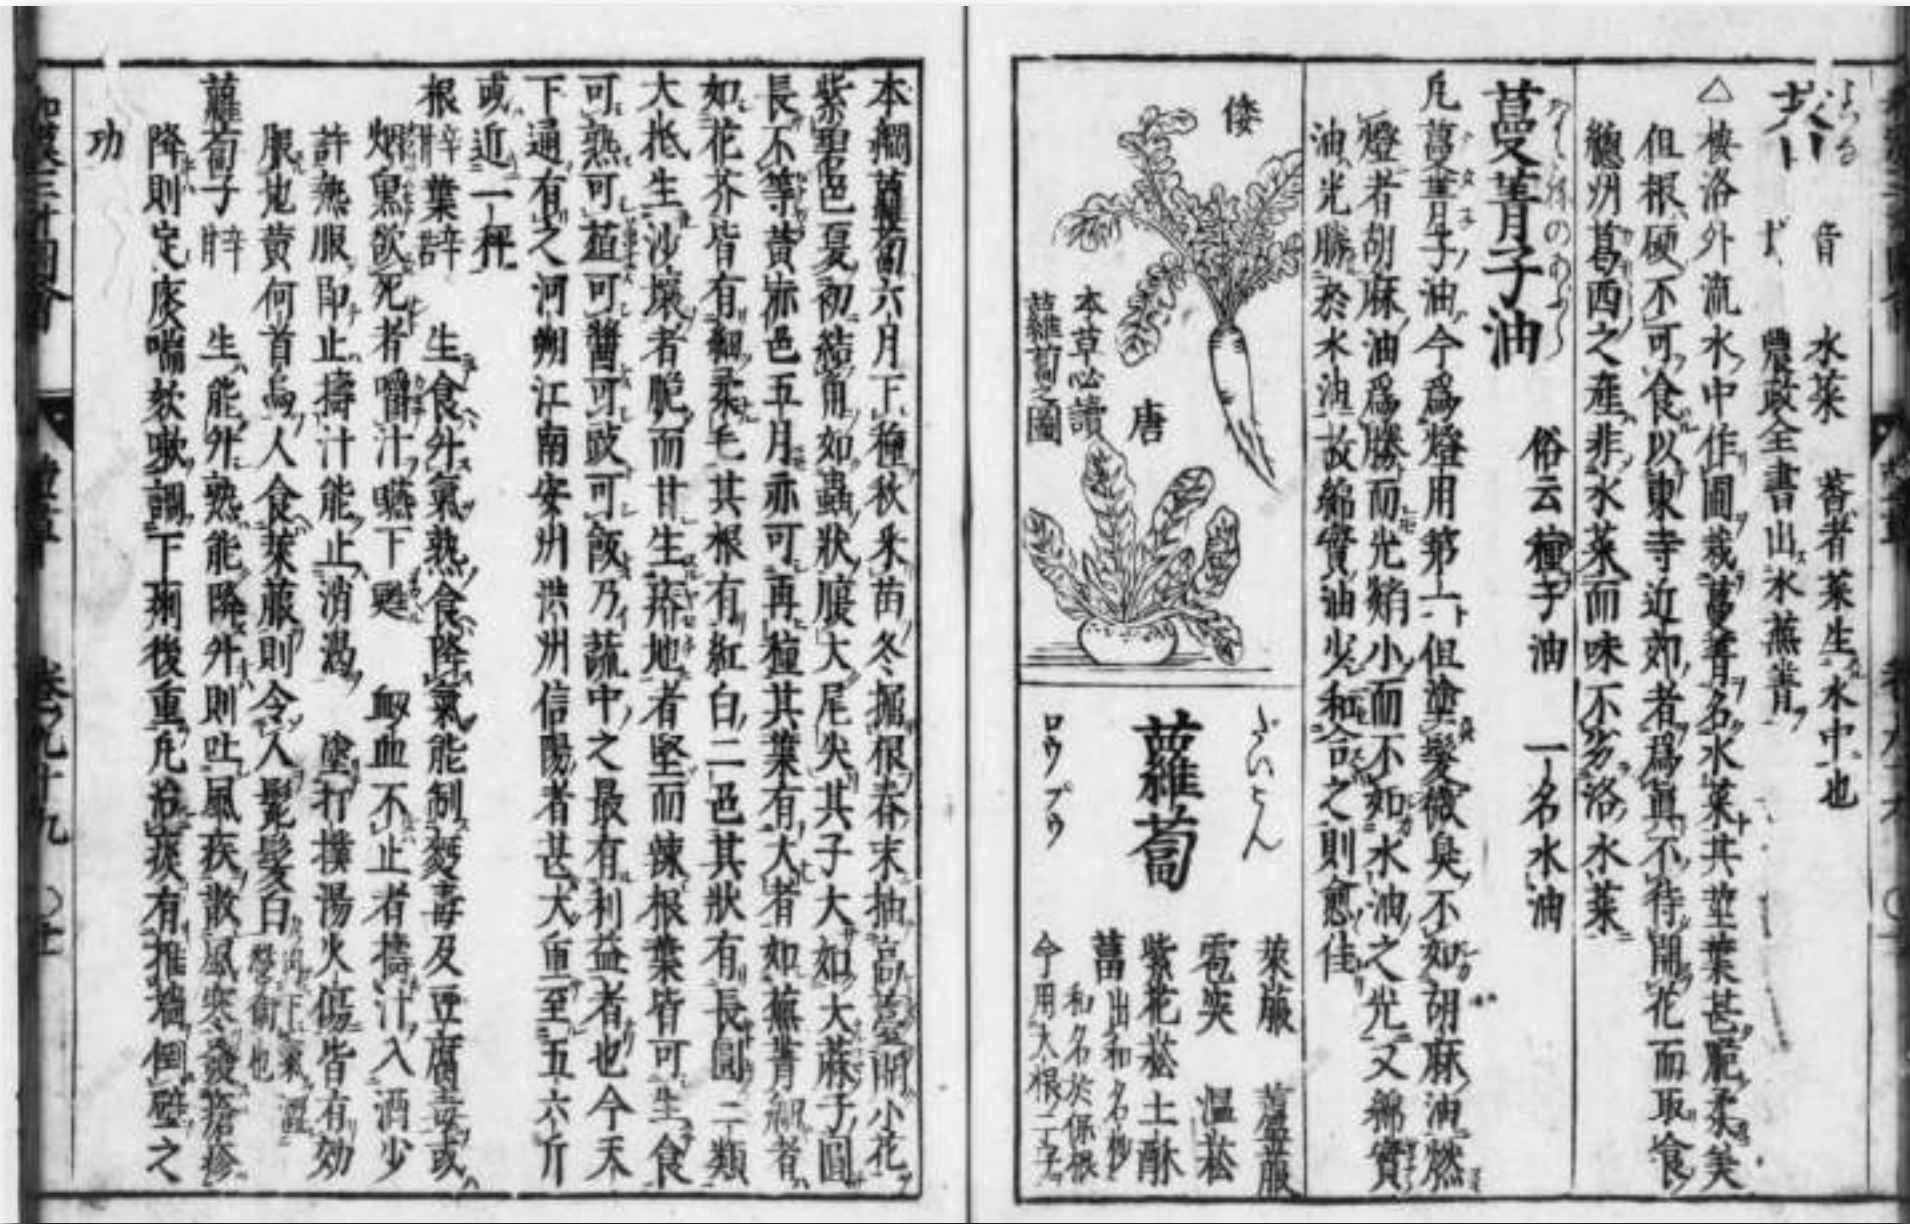 水菜 蕃者菜生水中也
農政全書出水蕪菁
△ 按洛外流水中作圃栽蔓菁名水菜其莖葉甚肥柔美
但根硬不可食以東寺近郊者爲眞不待開花而取食
總州葛西之産非水菜而味不劣洛水菜
蔓菁子油 俗云種子油 一名水油
凡蔓菁子油今爲燈用第一但塗髮微臭不如胡麻油燃
燈者胡麻油爲勝而光焰小而不如水油之光又綿實
油光勝於水油故綿實油少和合之則愈佳
倭
本草必讀
蘿蔔之圖
唐
だいこん
蘿蔔
ロウ プウ
萊菔 蘆萉
雹突 温菘
紫花菘 土酥
葍 出和名抄
和名於保根
今用大根二字
本綱蘿蔔六月下種秋采苗冬掘根春末抽高薹開小花
紫碧色夏初結角如蟲狀腹大尾尖其子大如大麻子圓
長不等黄赤色五月亦可再種其葉有大者如蕪菁細者
如花芥皆有細柔毛其根有紅白二色其狀有長圓二類
大抵生沙壤者脆而甘生瘠地者堅而辣根葉皆可生食
可熟可菹可醬可豉可飯乃蔬中之最有利益者也今天
下通有之河朔江南安州洪州信陽者甚大重至五六斤
或近一秤
根 辛 葉 辛苦 生食升氣熟食降氣能制麪毒及豆腐毒或
烟熏欲死者嚼汁嚥下甦 衄血不止者擣汁入酒少
許熱服即止擣汁能止消渴 塗打撲湯火傷皆有効
服地黄何首烏人食萊菔則令人髭髮白
蘿蔔子 辛 生能升熟能降升則吐風痰散風寒發瘡疹
降則定痰喘欬嗽調下痢後重凡治痰有推墻倒壁之
功